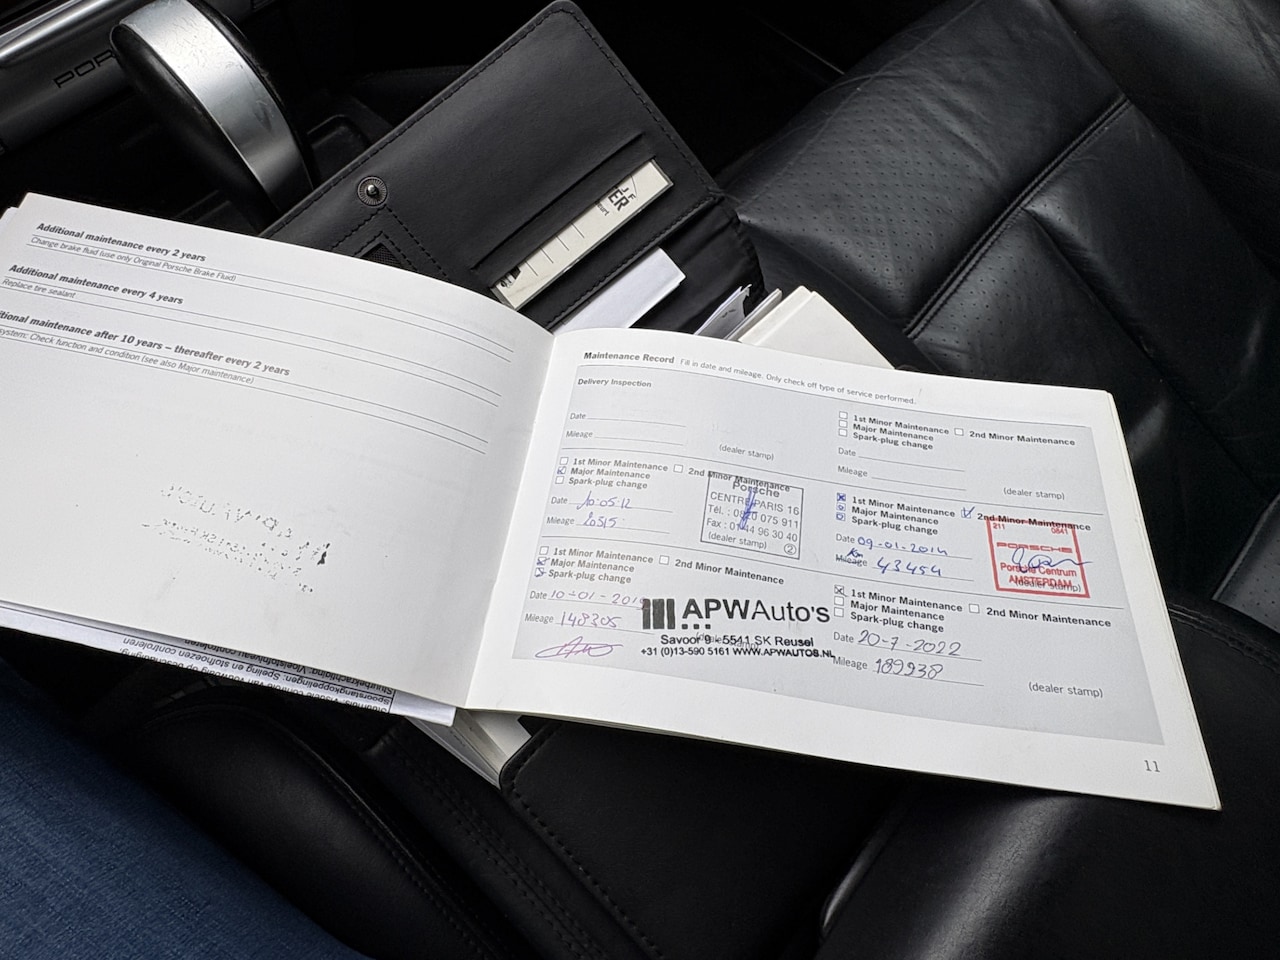 POR
Additional maintenance every 2 years
Change brake fluid (use only Original Porsche Brake Fluid)
Additional maintenance every 4 years
Replace tire sealant
itional maintenance after 10 years – thereafter every 2 years
system: Check function and condition (see also Major maintenance)
Maintenance Record Fill in date and mileage. Only check off type of service performed.
Delivery Inspection
Date
Mileage
(dealer stamp)
1st Minor Maintenance 2nd Minor Maintenance
Major Maintenance
Spark-plug change
Date
Mileage
(dealer stamp)
1st Minor Maintenance 2nd Minor Maintenance
Major Maintenance
Spark-plug change
Date 10.05.12
Mileage 20515
Porsche
CENTRE PARIS 16
Tél. : 0820 075 911
Fax : 01 44 96 30 40
(dealer stamp) 2
1st Minor Maintenance 2nd Minor Maintenance
Major Maintenance
Spark-plug change
Date 09-01-2014
Mileage 43454
km
211 0641
PORSCHE
Porsche Centrum
AMSTERDAM
(dealer stamp)
1st Minor Maintenance 2nd Minor Maintenance
Major Maintenance
Spark-plug change
Date 10-01-2019
Mileage 148305
APWAuto's
Savoor 9 - 5541 SK Reusel
+31 (0)13-590 5161 WWW.APWAUTOS.NL
1st Minor Maintenance 2nd Minor Maintenance
Major Maintenance
Spark-plug change
Date 20-7-2022
Mileage 189938
(dealer stamp)
11